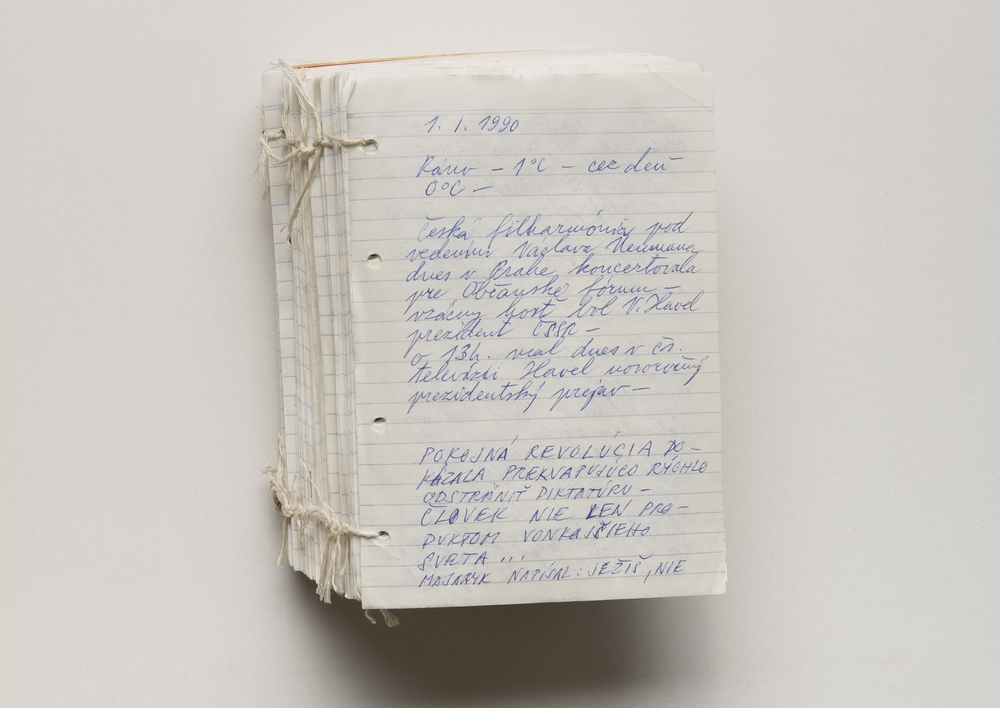 1. I. 1990
Ráno - 1°C - cez deň
0°C -
Česká filharmónia pod
vedením Václava Neumana
dnes v Prahe koncertovala
pre Občanské fórum -
vzácny hosť bol V. Havel
prezident ČSSR -
o 13h. mal dnes v čs.
televízii Havel novoročný
prezidentský prejav -
POKOJNÁ REVOLÚCIA DO-
KÁZALA PREKVAPUJÚCO RÝCHLO
ODSTRÁNIŤ DIKTATÚRU -
ČLOVEK NIE LEN PRO-
DUKTOM VONKAJŠIEHO
SVETA ...
MASARYK NAPÍSAL: JEŽIŠ, NIE